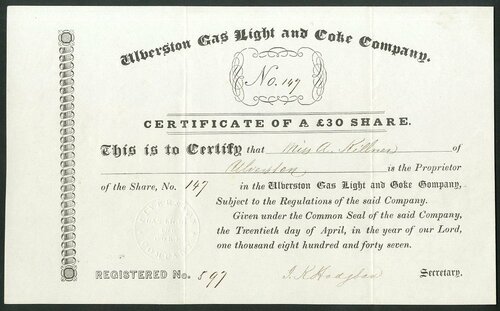 Ulverston Gas Light and Coke Company.
No. 147
CERTIFICATE OF A £30 SHARE.
This is to Certify that Miss A. Kilner of
Ulverston is the Proprietor
of the Share, No. 147 in the Ulverston Gas Light and Coke Company,
Subject to the Regulations of the said Company.
Given under the Common Seal of the said Company,
the Twentieth day of April, in the year of our Lord,
one thousand eight hundred and forty seven.
REGISTERED No. 597 Secretary.